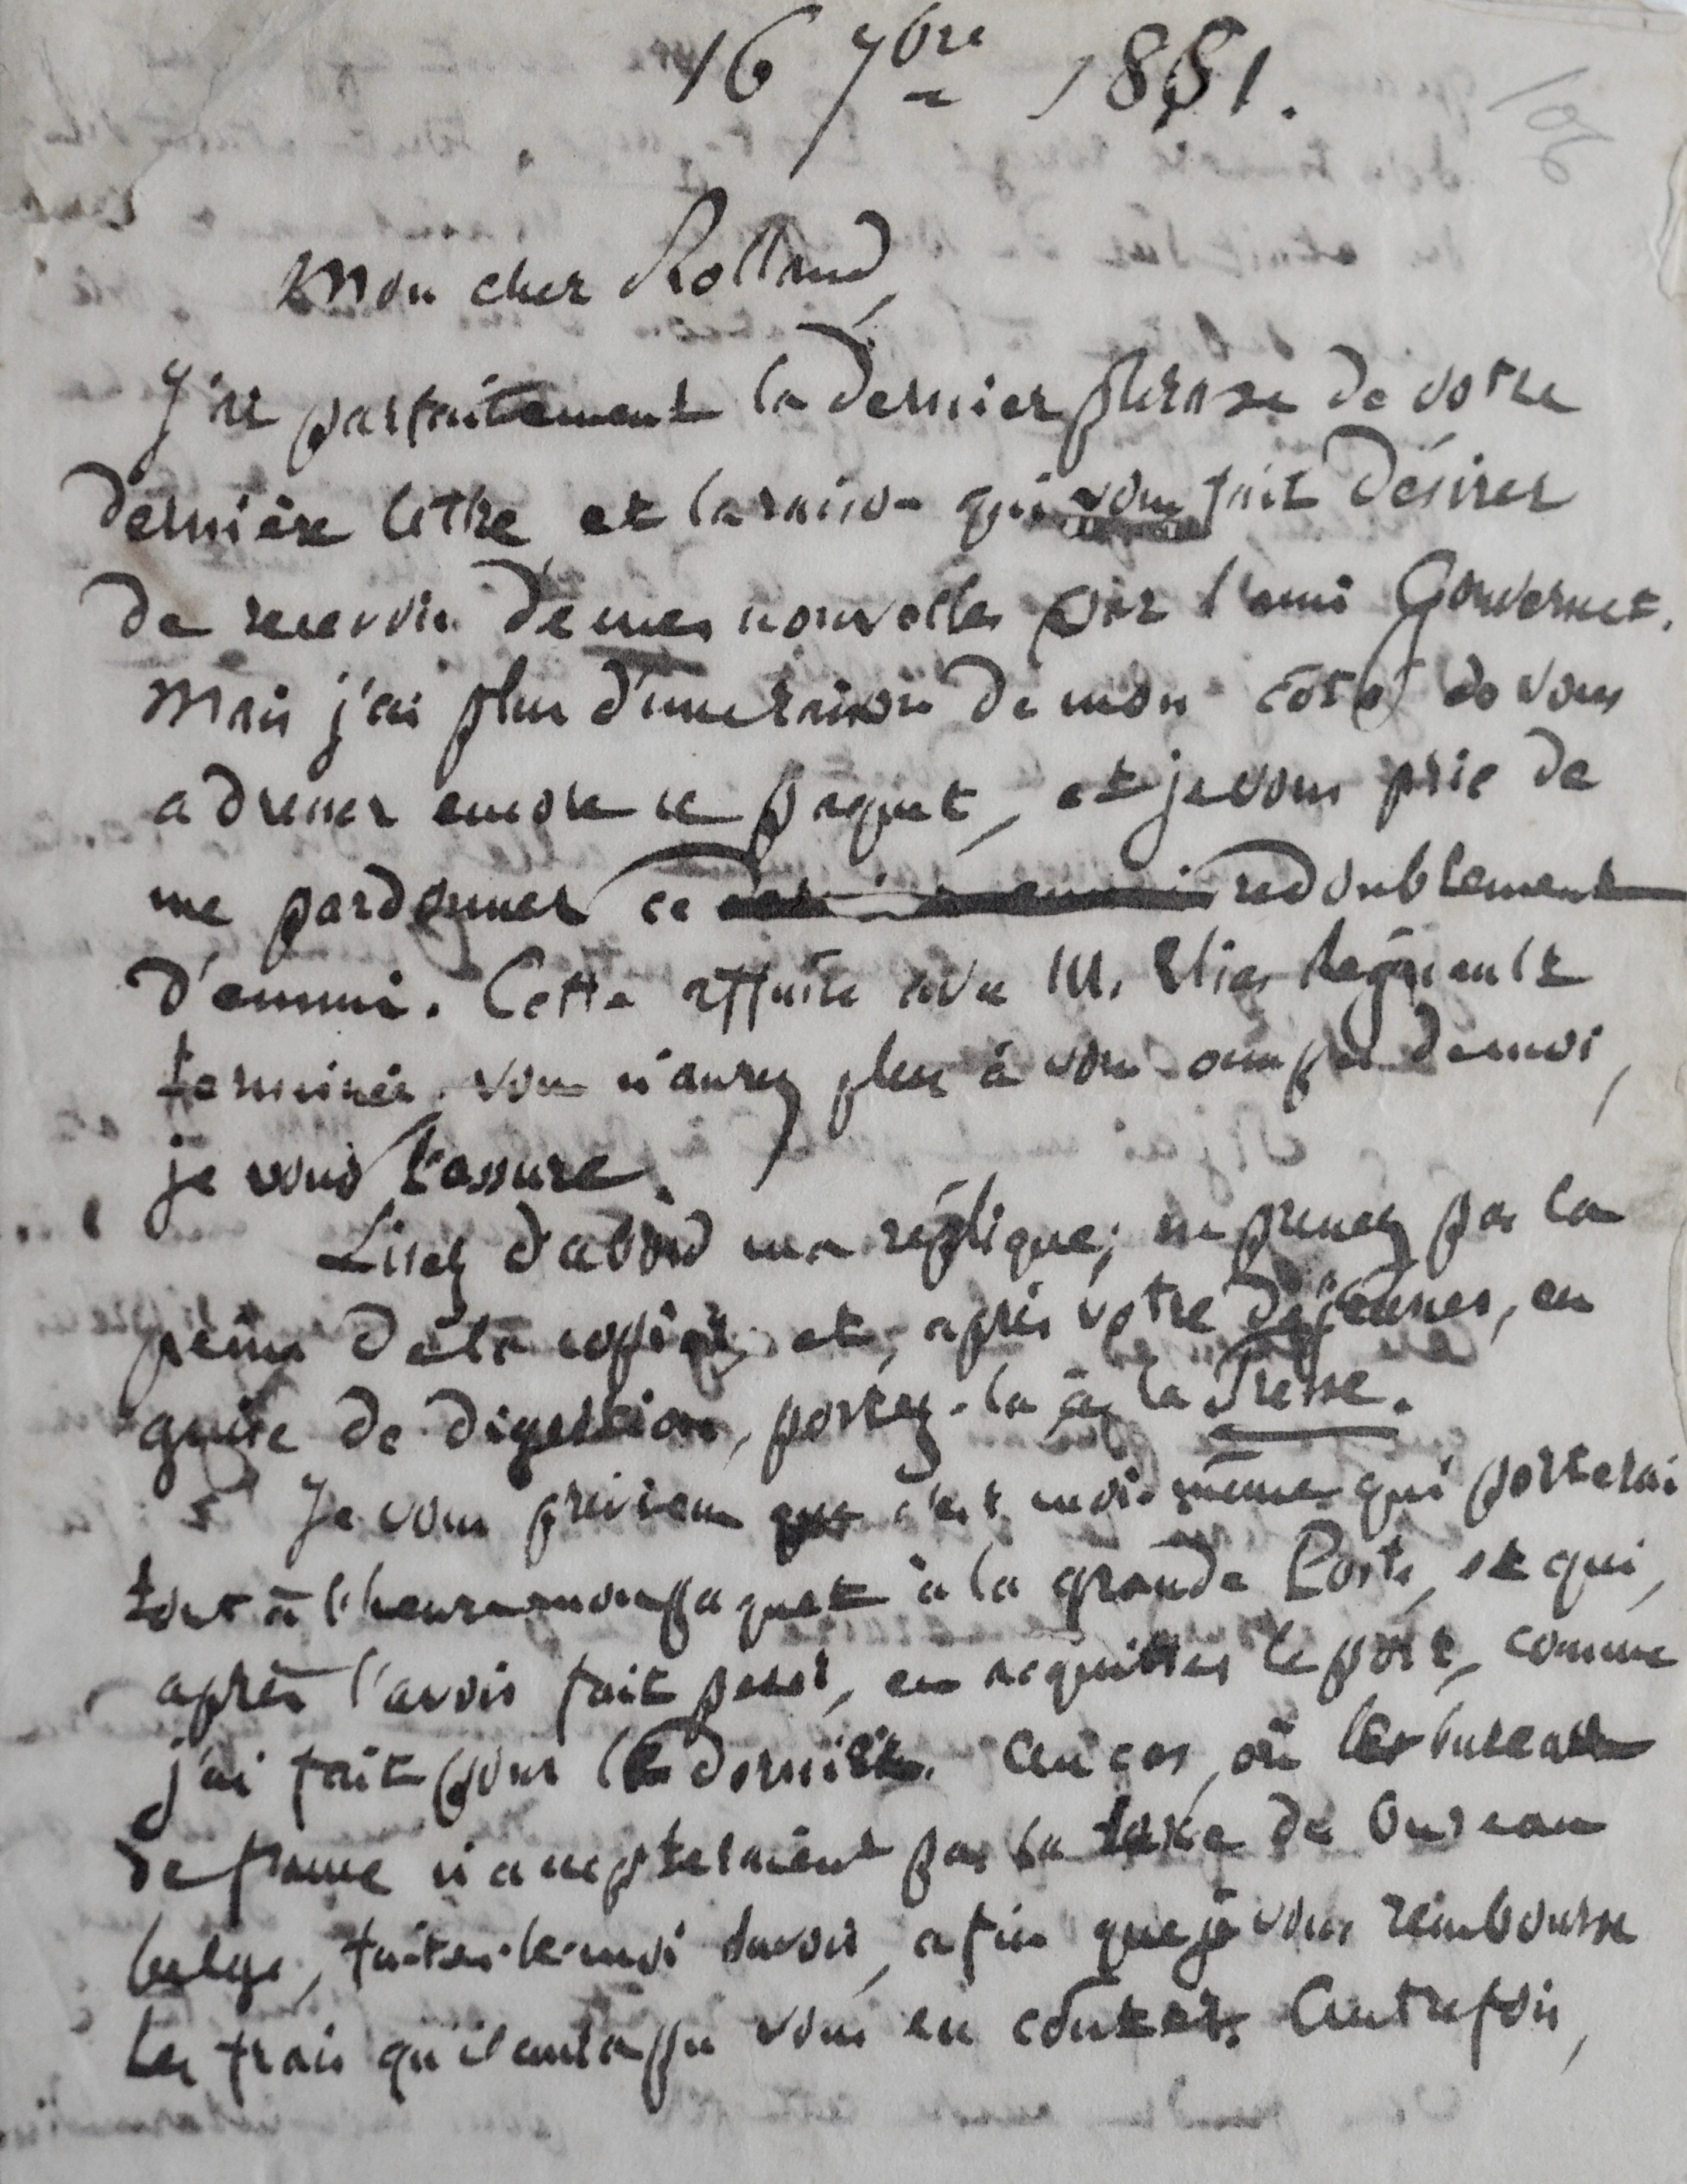 16 7bre 1851.
106
Mon cher Rolland,
J'ai parfaitement la dernier phrase de votre
dernière lettre et la raison qui vous fait désirer
de recevoir de mes nouvelles par l'ami Gouvernet.
Mais j'ai plus d'une raison de mon côté de vous
adresser encore ce paquet, et je vous prie de
me pardonner ce redoublement
d'ennui. Cette affaire avec M. Elias Regnault
terminée, vous n'aurez plus à vous occuper de moi,
je vous l'assure.
Lisez d'abord ma réplique; ne prenez pas la
peine de la copier, et, après votre déjeuner, en
guise de digestion, portez-la à la Presse.
Je vous préviens que c'est moi-même qui porterai
tout à l'heure mon paquet à la grande Poste, et qui,
après l'avoir fait peser, en acquitter le port, comme
j'ai fait pour le dernier. Au cas où les bureaux
de france n'accepteraient pas la taxe du bureau
belge, faites-le-moi savoir, afin que je vous rembourse
les frais qu'il aura pu vous en coûter. Autrefois,